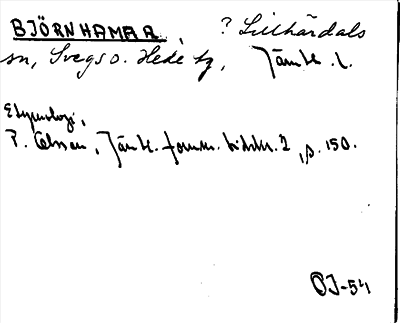 BJÖRNHAMRA, ? Lillhärdals
sn, Svegs o. Hede tg, Jämtl. l.
Etymologi,
P. Olsson, Jämtl. fornm. tidskr. 2, s. 150.
OJ-54